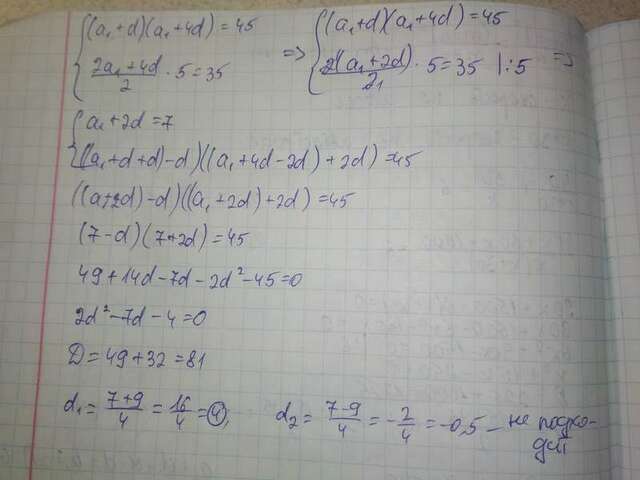 {(a₁+d)(a₁+4d)=45 => {(a₁+d)(a₁+4d)=45
{(2a₁+4d)/2 · 5=35 {2(a₁+2d)/2₁ · 5=35 |:5 =>
{a₁+2d=7
{((a₁+d+d)-d)((a₁+4d-2d)+2d)=45
((a+2d)-d)((a₁+2d)+2d)=45
(7-d)(7+2d)=45
49+14d-7d-2d²-45=0
2d²-7d-4=0
D=49+32=81
d₁=(7+9)/4=16/4=4, d₂=(7-9)/4=-2/4=-0,5 – не подхо-
дит